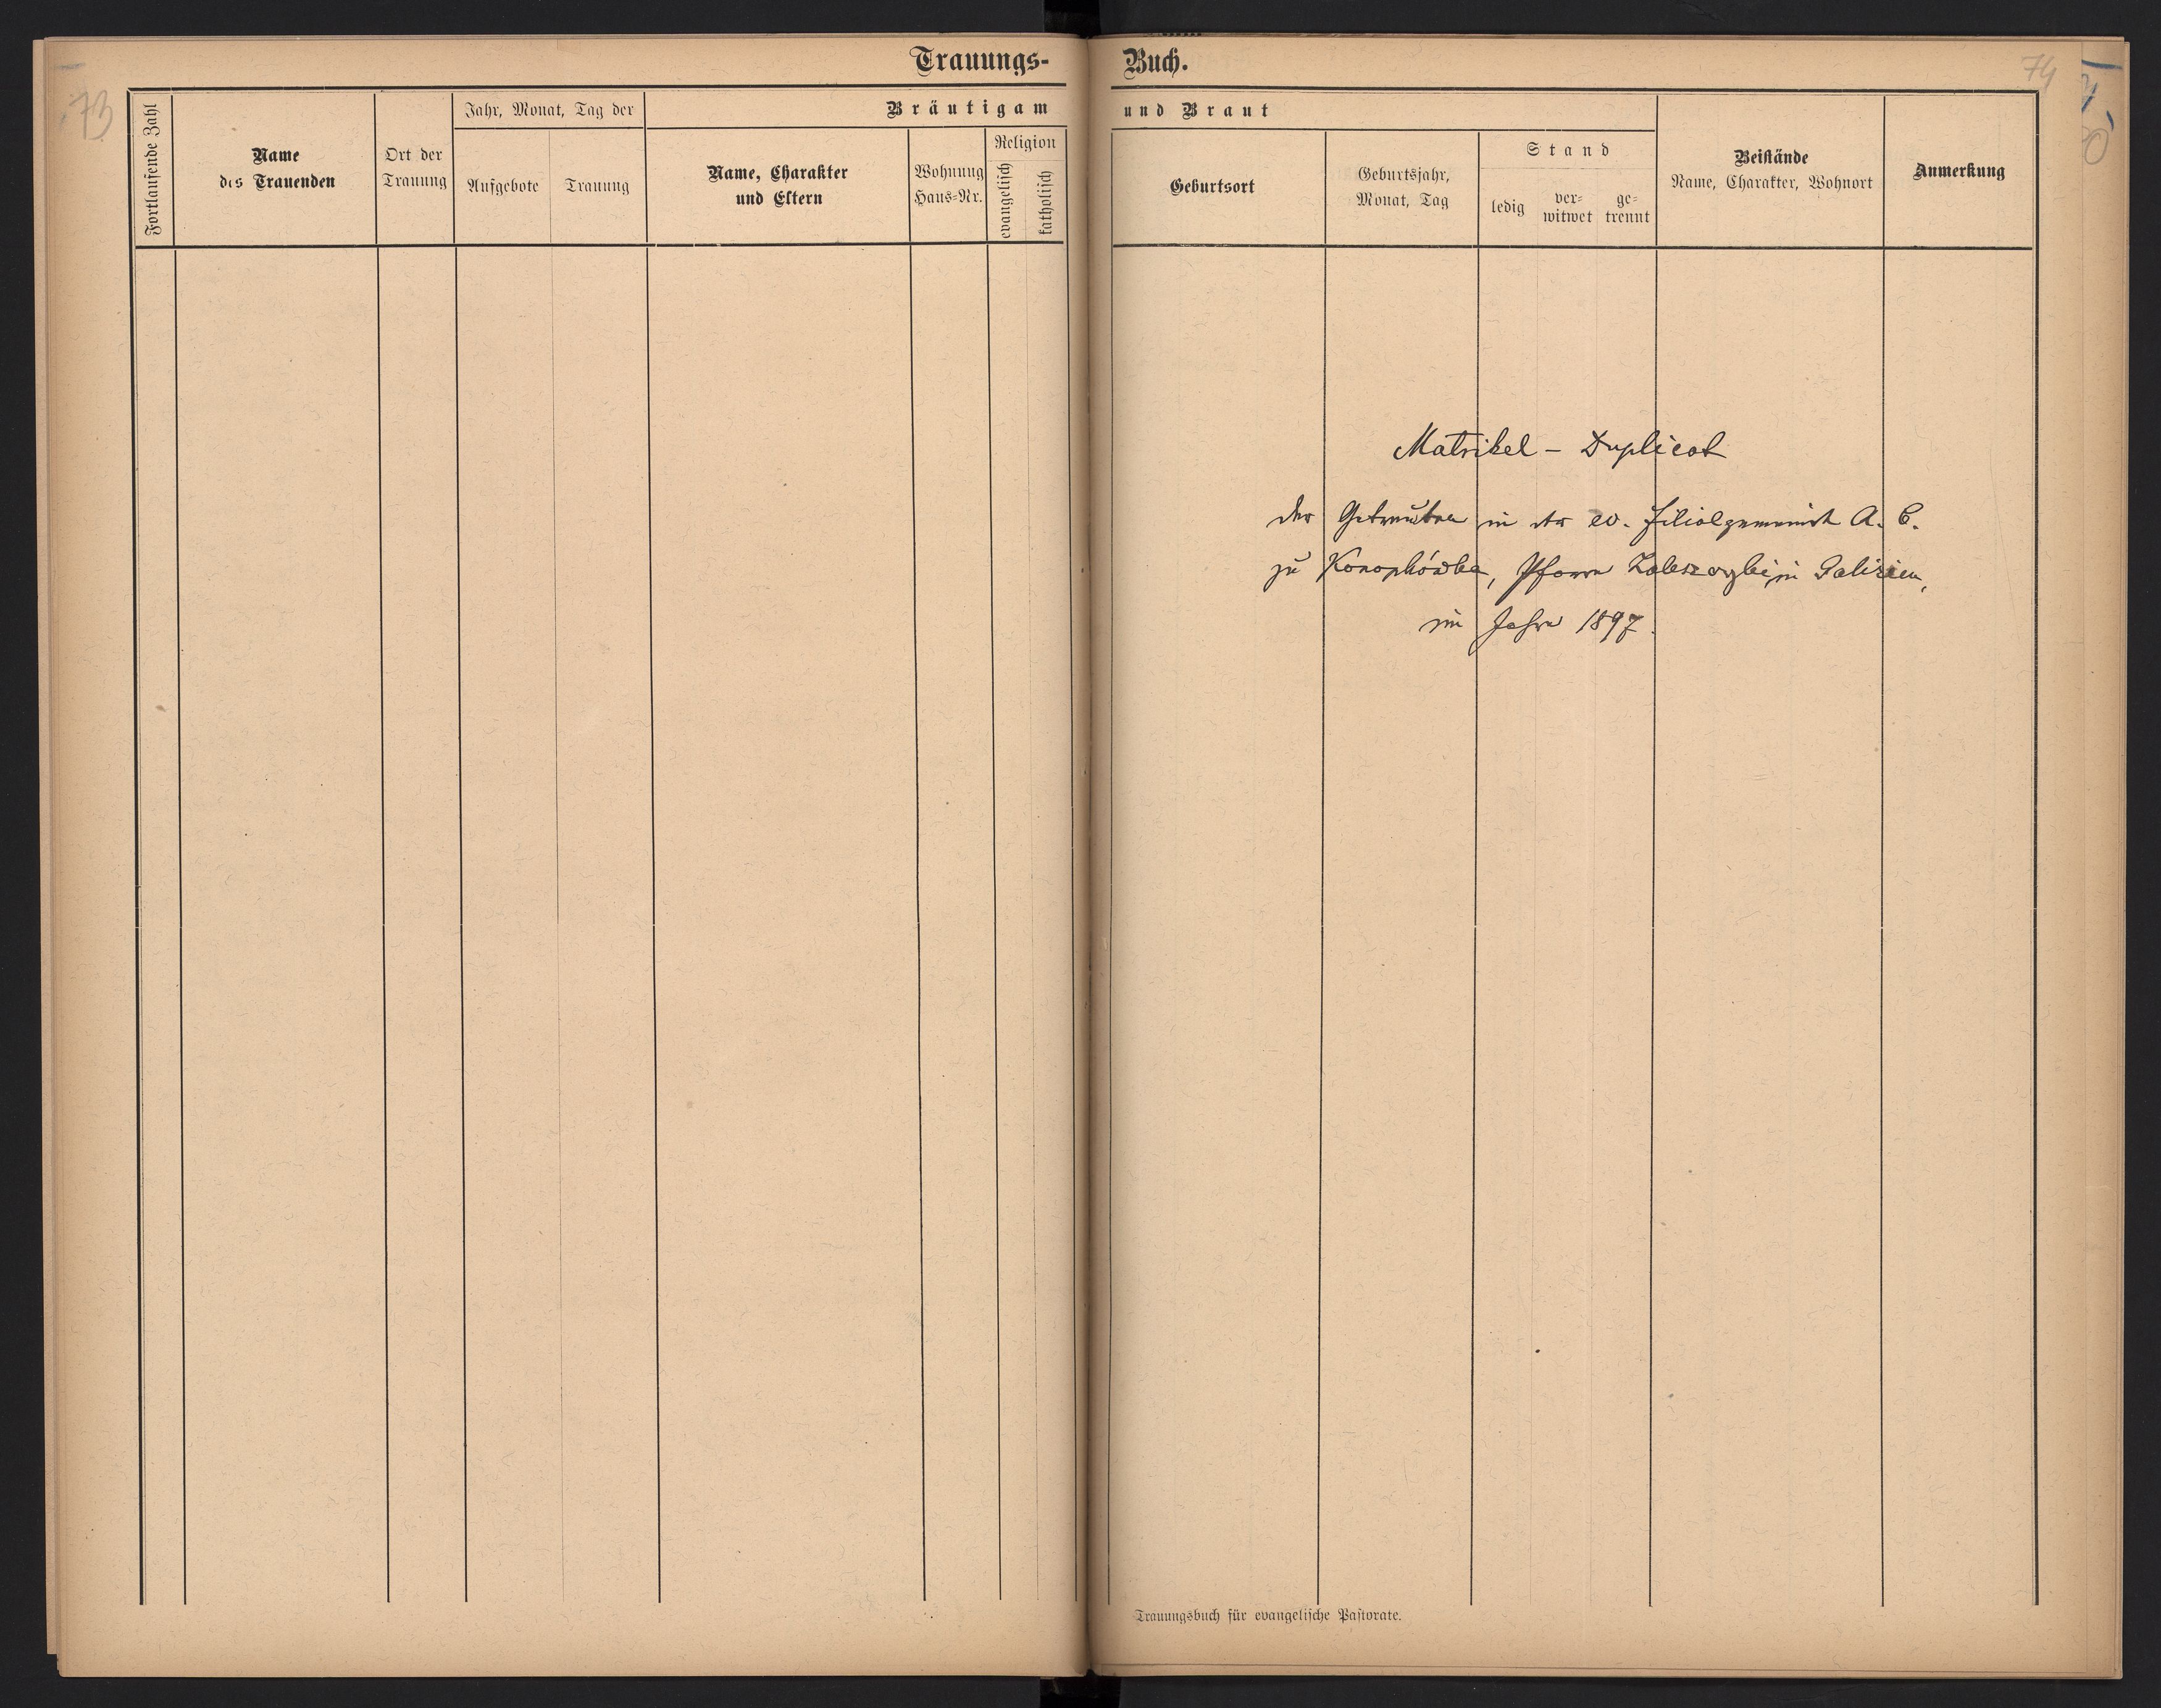 Trauungs-
Buch.
73
74
Fortlaufende Zahl
Name
des Trauenden
Ort der
Trauung
Jahr, Monat, Tag der
Aufgebote
Trauung
Bräutigam
Name, Charakter
und Eltern
Wohnung
Haus-Nr.
Religion
evangelisch
katholisch
und Braut
Geburtsort
Geburtsjahr,
Monat, Tag
Stand
ledig
ver-
witwet
ge-
trennt
Beistände
Name, Charakter, Wohnort
Anmerkung
Matrikel - Duplicat
der Getrauten in der ev. Filialgemeinde A. C.
zu Konopkówka, Pfarre Zaleszczyki in Galizien,
im Jahre 1897.
Trauungsbuch für evangelische Pastorate.